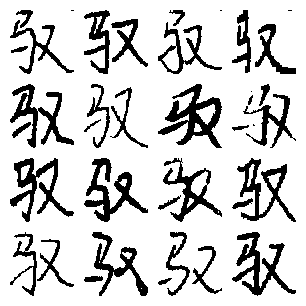 驭驭驭驭
驭驭驭驭
驭驭驭驭
驭驭驭驭